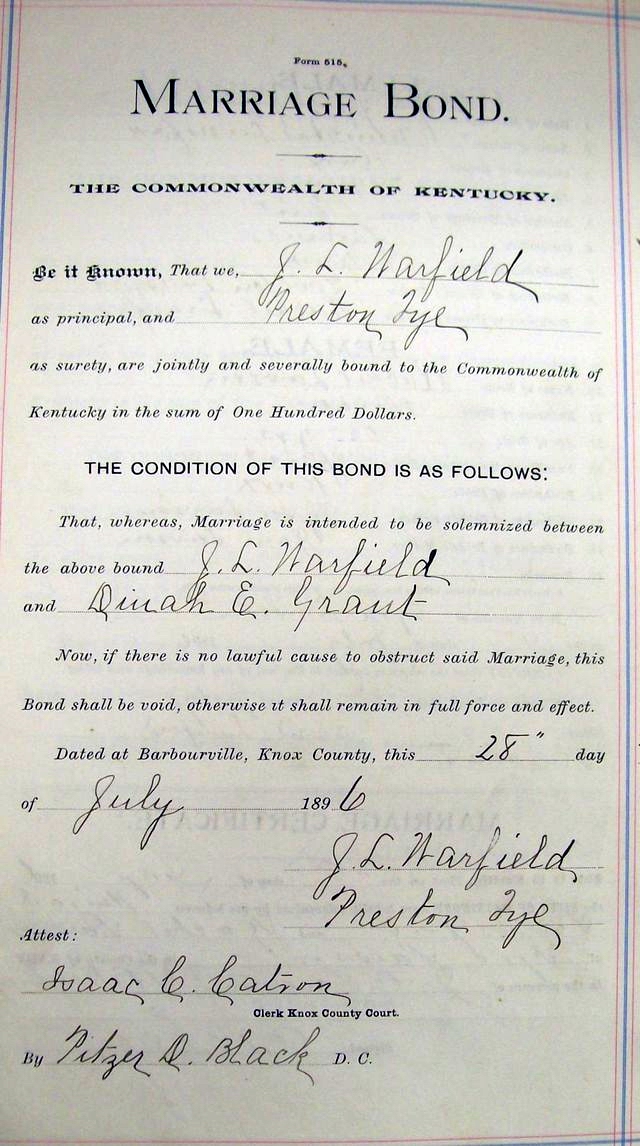 Form 515.
MARRIAGE BOND.
THE COMMONWEALTH OF KENTUCKY.
Be it Known, That we, J. L. Warfield
as principal, and Preston Tye
as surety, are jointly and severally bound to the Commonwealth of
Kentucky in the sum of One Hundred Dollars.
THE CONDITION OF THIS BOND IS AS FOLLOWS:
That, whereas, Marriage is intended to be solemnized between
the above bound J. L. Warfield
and Dinah E. Grant
Now, if there is no lawful cause to obstruct said Marriage, this
Bond shall be void, otherwise it shall remain in full force and effect.
Dated at Barbourville, Knox County, this 28" day
of July 1896
J. L. Warfield
Preston Tye
Attest:
Isaac C. Catron
Clerk Knox County Court.
By Pitzer D. Black D. C.